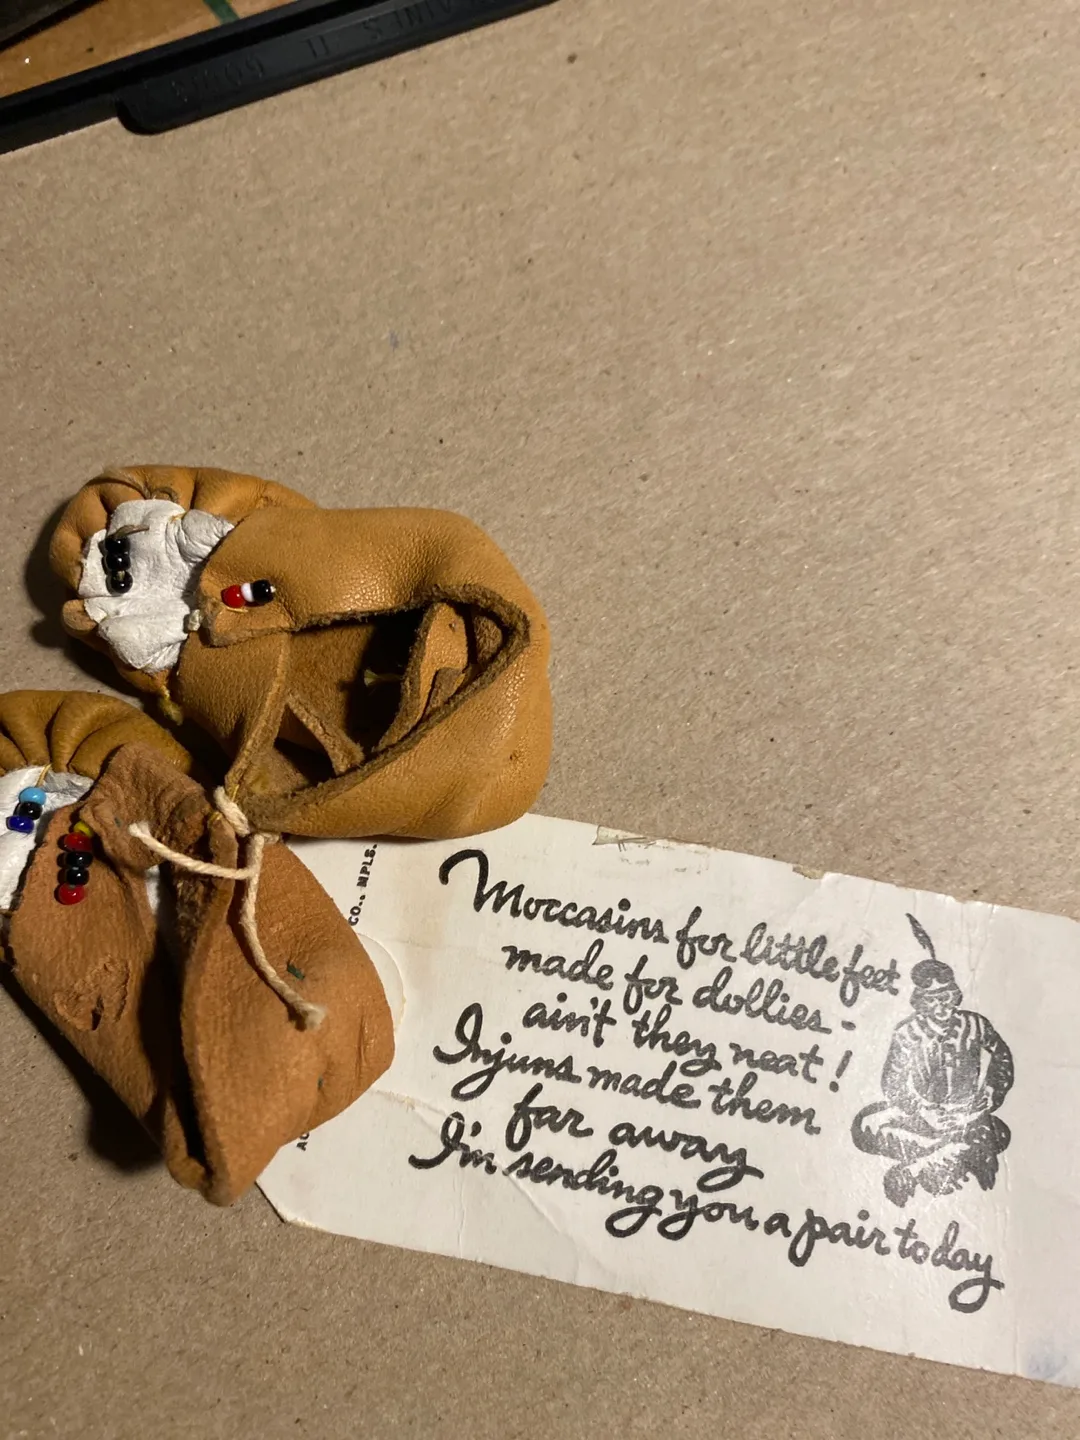 Moccasins for little feet
made for dollies -
ain't they neat!
Injuns made them
far away
I'm sending you a pair today
CO., MPLS.